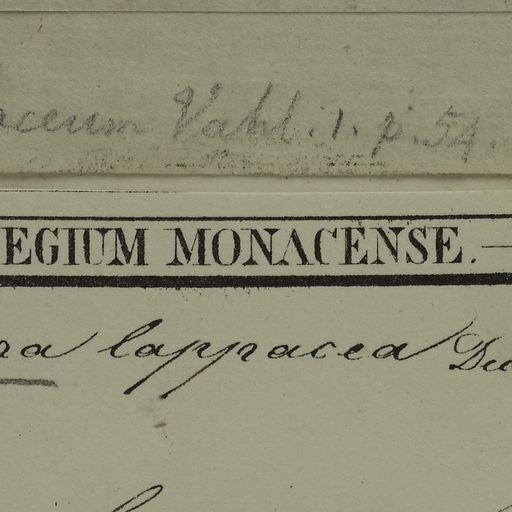 aceum Vahl. 1. p. 54.
EGIUM MONACENSE.—
ra lappacea